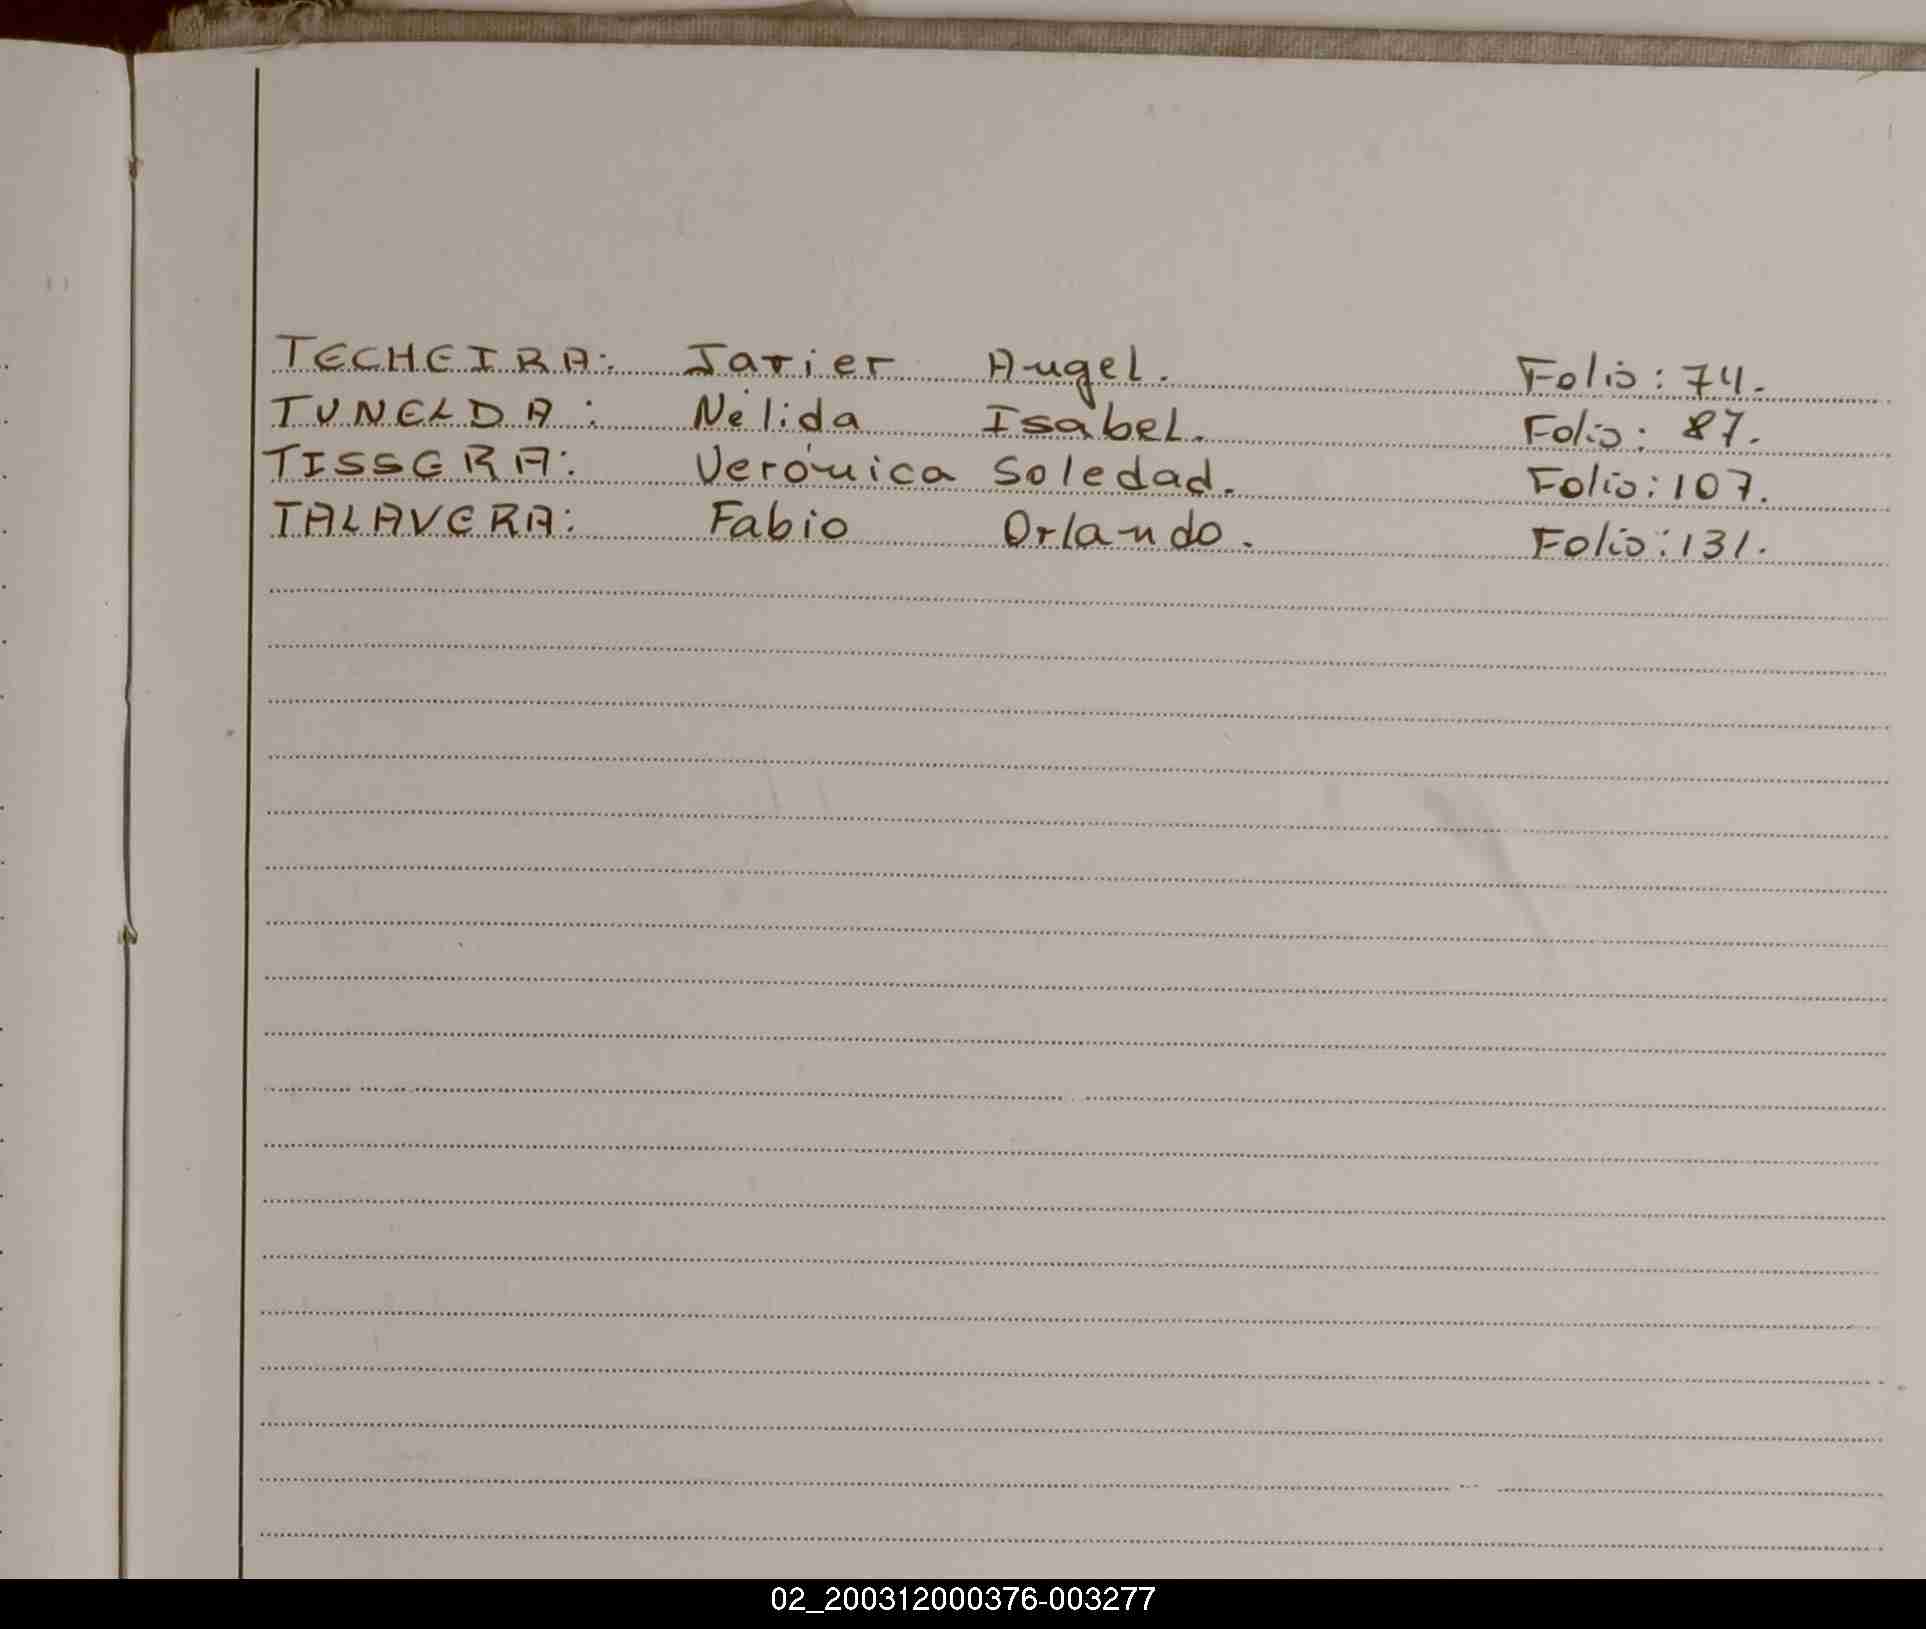 TECHEIRA: Javier Angel. Folio: 74.
TUNELDA: Nélida Isabel. Folio: 87.
TISSERA: Verónica Soledad. Folio: 107.
TALAVERA: Fabio Orlando. Folio: 131.
02_200312000376-003277